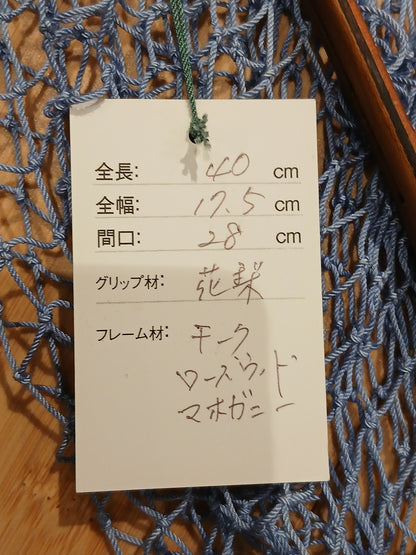 全長: 40 cm
全幅: 17.5 cm
間口: 28 cm
グリップ材: 花梨
フレーム材: チーク
ローズウッド
マホガニー